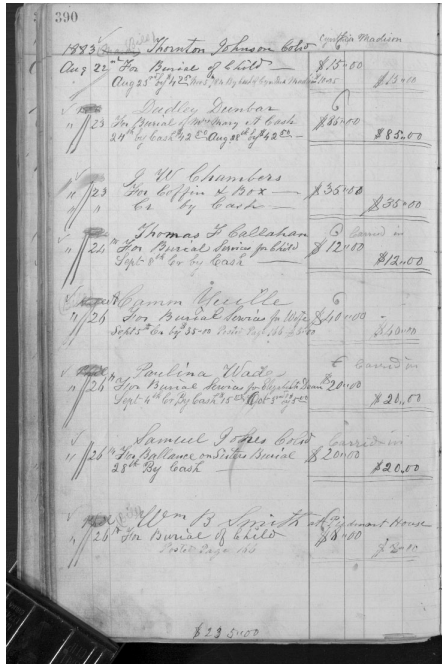 390
Cynthia Madison
1883 Thornton Johnson Cold
Aug 22 nd For Burial of Child — $15"00
Aug 25th by $4.25 $15"00
Dudley Dunbar
" 23 For Burial of Mary A Cash $85"00
24th by Cash $42 50 Aug 28th by $42 50 — $85.00
J W Chambers
" 23 For Coffin & Box — $35"00
" " Cr by Cash — $35"00
Thomas F Callahan Carrid in
" 26 th For Burial Services for Child $12"00
Sept 8th Cr by Cash $12.00
Camm Yuille
" 26 For Burial Services for Wife $40"00
Sept 5th Cr by $35-00 Postd Page 166 $5.00 $40"00
Paulina Wade Carrid in
" 26 th For Burial Services for $20"00
Sept 4th Cr By Cash $15.00 Oct 5nd by 5 00 $20.00
Samuel Jones Cold Carrid in
" 26 th For Ballance on Sisters Burial $20"00
28th By Cash — $20.00
Wm B Smith at Piedmont House
" 26 th For Burial of Child $8"00
Postd Page 166 $8"00
$235"00